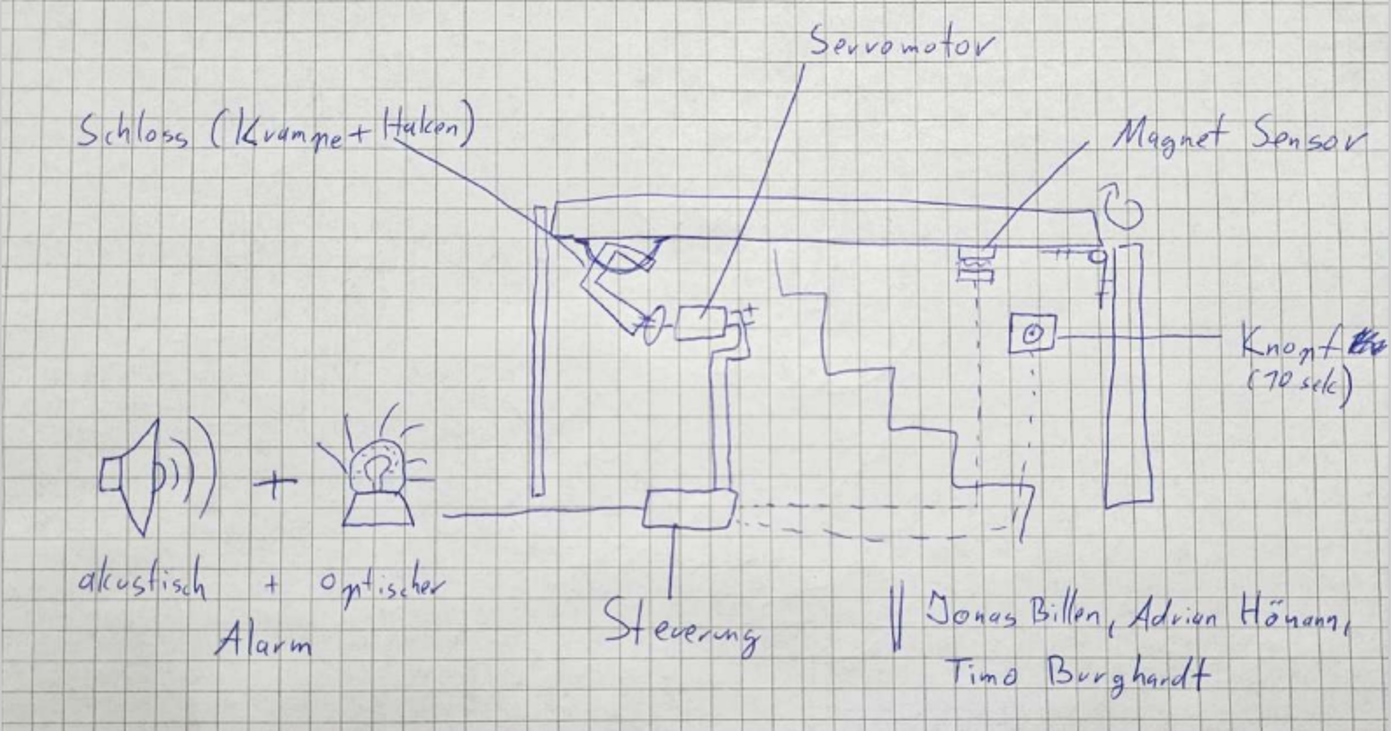 Servomotor
Schloss (Krampe + Haken)
Magnet Sensor
Knopf
(10 sek)
akustisch + optischer
Alarm
Steuerung
Jonas Billen, Adrian
Timo Burghardt